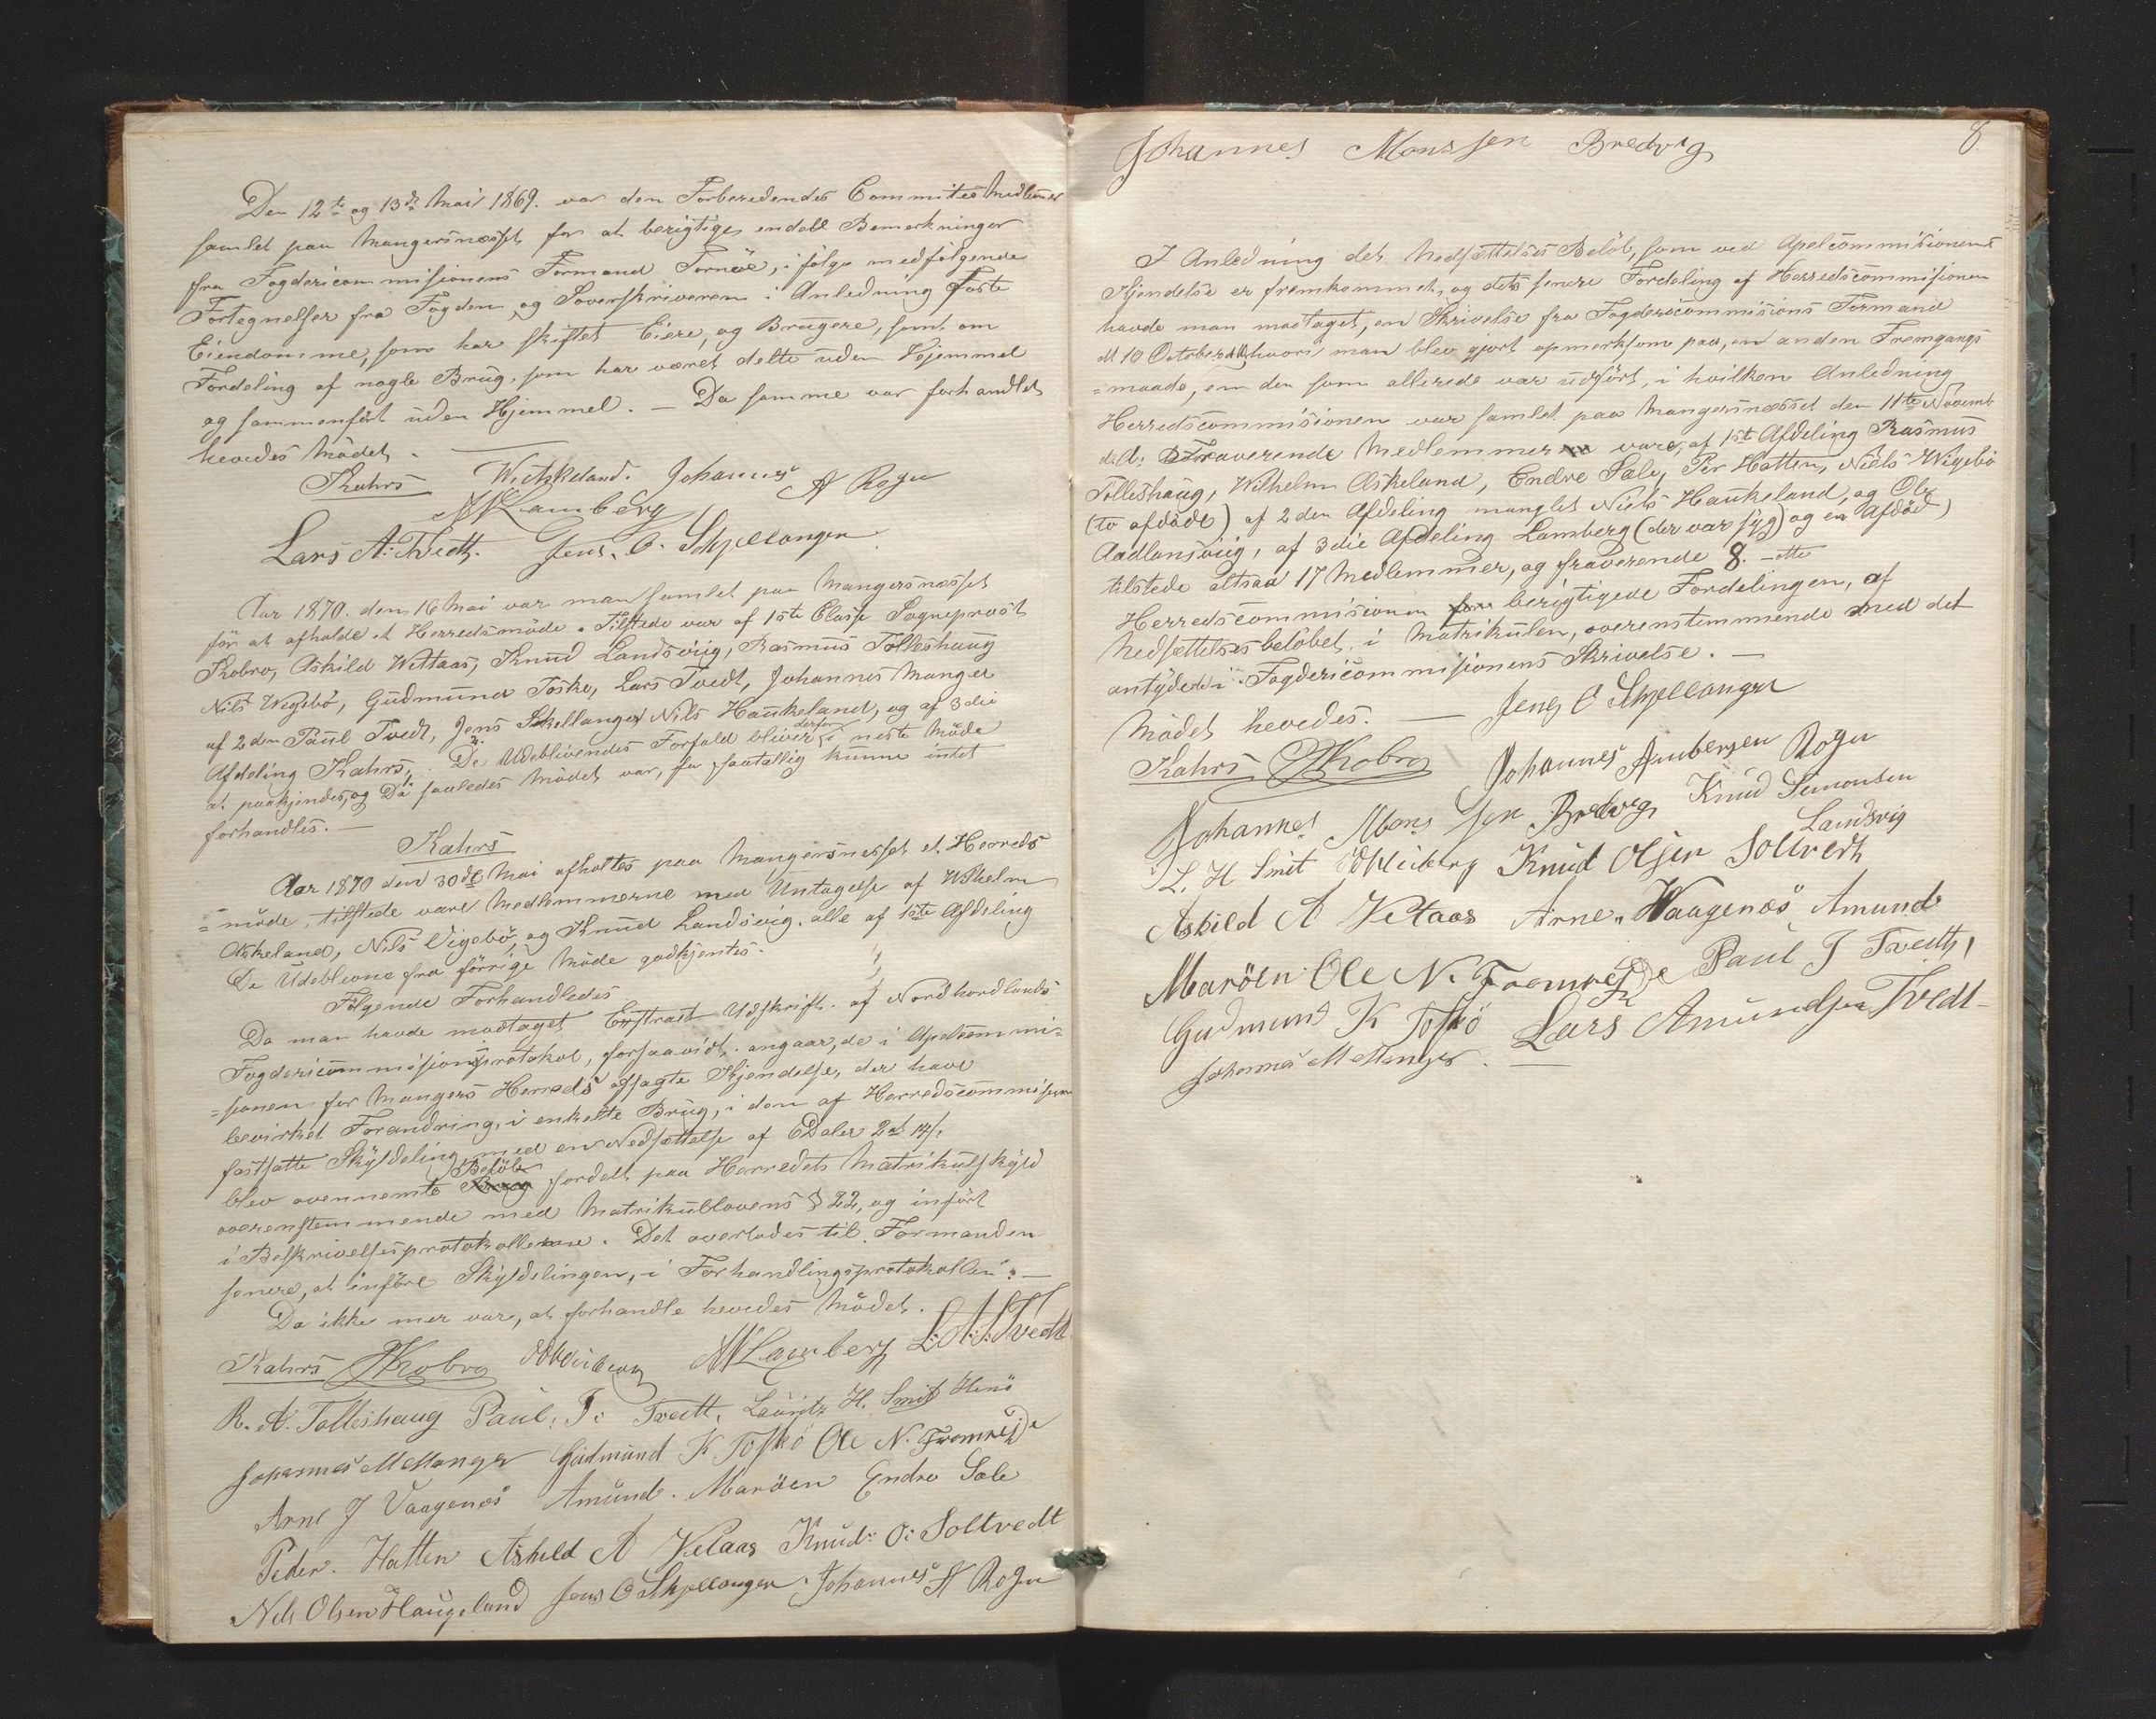 Den 12te og 13de Mai 1869. var den Forberedendes Commitès Medlemer
samlet paa Mangersnæsset for at berigtiges endell Bemerkninger
fra Fogdericommisionens Formand Tornöe, i følge medfølgende
Fortegnelser fra Fogden, og Soverskriveren i Anledning
Eiendomme, som har skiftet Eiere, og Brugere, samt om
Fordeling af nogle Brug, som har været delte uden Hjemmel
og sammenført uden Hjemmel. — Da samme var forhandlet
hevedes Mödet.
Kahrs W Askeland. Johannes A Rogn
Lamberg
Lars A. Tvedt. Jens. O. Schjellanger
Aar 1870. den 16 Mai var man samlet paa Mangersnæsset
för at afholde et Herredsmöde. Tilstede var af 1ste Classe Sogneprost
Kobro, Askild Wettaas, Knud Landsvig, Rasmus Tolleshaug
Nils Wigebö, Gudmund Toske, Lars Tvedt, Johannes Manger
af 2den Paul Tvedt, Jens Skellanger Nils Haukeland, og af 3die
Afdeling Kahrs, De Udeblivendes Forfald bliver derfor i neste Möde
at paakjendes, og Da saaledes Mödet var, fa saatallig kunne intet
forhandles. —
Kahrs
Aar 1870 den 30de Mai afholtes paa Mangersnesset et Herreds
=möde, tilstede vare Medlemmerne med Untagelse af Wilhelm
Askeland, Nils Vigebö, og Knud Landsvig. alle af 1ste Afdeling
De Udeblevne fra förrige Möde godkjentes.
Følgende Forhandledes
Da man havde modtaget Exstrast Udskrift. af Nordhordlands
Fogdericommisionsprotokol, forsaavidt. angaar, de i Apelcommi=
=sionen for Mangers Herreds afsagte Kjendelse, der have
bevirket Forandring, i enkelte Brug, i den af Herredscommisionen
fastsatte Skyldeling, med en Nedsættelse af 6 Daler 2 14
blev ovennemte Beløb fordelt paa Herredets Matrikulskyld
overenstemmende med Matrikullovens § 22, og infört
i Beskrivelsesprotokollerne. Det overlodes til Formanden
senere, at införe Skyldelingen, i Forhandlingsprotokollen. —
Da ikke mer var, at forhandle hevedes Mödet.
Kahrs Kobro Lamberg L. A. Tvedt
R. A. Tolleshaug Paul. J: Tvedt, Lauritz H. Smit Henö
Johannes M Manger Gudmund K Toskö Ole N. Fromreide
Arne J Vaagenes Amund. Maröen Endre Sale
Peder. Hatten Askild A Vetaas Knud: O: Soltvedt
Nels Olsen Haugeland Jens O Skjellanger. Johannes A Rogn
8.
Johannes Monssen Bredvig
I Anledning det Nedsættelses Belöb, som ved Apelcommisionens
Kjendelse er fremkommet, og dets senere Fordeling af Herredscommisionen
havde man modtaget, en Skrivelse fra Fogdericommisions Formand
dt 10 October hvori man blev gjort opmerksom paa, en anden Fremgangs
=maade, en den som allerede var udfört, i hvilken Anledning
Herredscommisionen var samlet paa Mangersnesset den 11te Novemb
d.A. Fraverende Medlemmer vare, af 1ste Afdeling Rasmus
Tolleshaug, Wilhelm Askeland, Endre Sale, Per Hatten, Niels Wigebö
(to afdöde) af 2den Afdeling manglet Niels Haukeland, og Ole
Aadlandsvig, af 3die Afdeling Lamberg (der var syg) og en Afdöd)
tilstede altsaa 17 Medlemmer, og fraverende 8. — otte
Herredscommisionen berigtigede Fordelingen, af
Nedsættelsesbelöbet, i Matrikulen, overenstemmende med det
antydede i Fogdericommisionens Skrivelse. —
Mödet hevedes. — Jens O Skjellanger
Kahrs Kobro Johannes Andersen Rogn
Johannes Mons sen Bredvig Knud Simonsen
Landsvig
L. H Smit Knud Olsen Soltvedt
Askild A Vetaas Arne Waagenös Amund
Maröen Ole N. Fromreide Paul J Tvedt,
Gudmund K Toskö Lars Amundsen Tvedt
Johannes M Manger. —